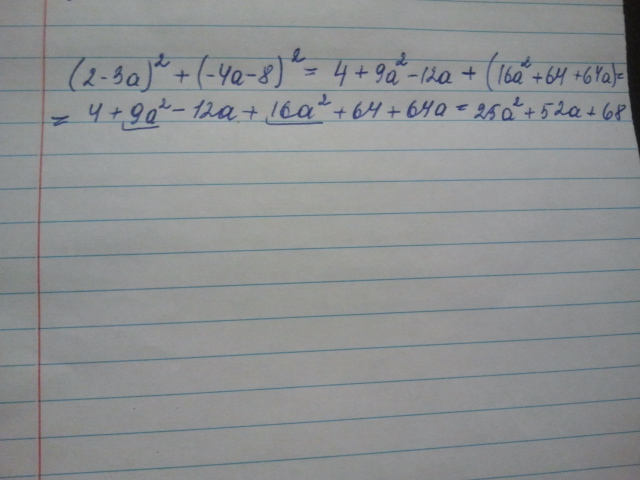 (2-3a)² + (-4a-8)² = 4 + 9a² - 12a + (16a² + 64 + 64a) =
= 4 + 9a² - 12a + 16a² + 64 + 64a = 25a² + 52a + 68